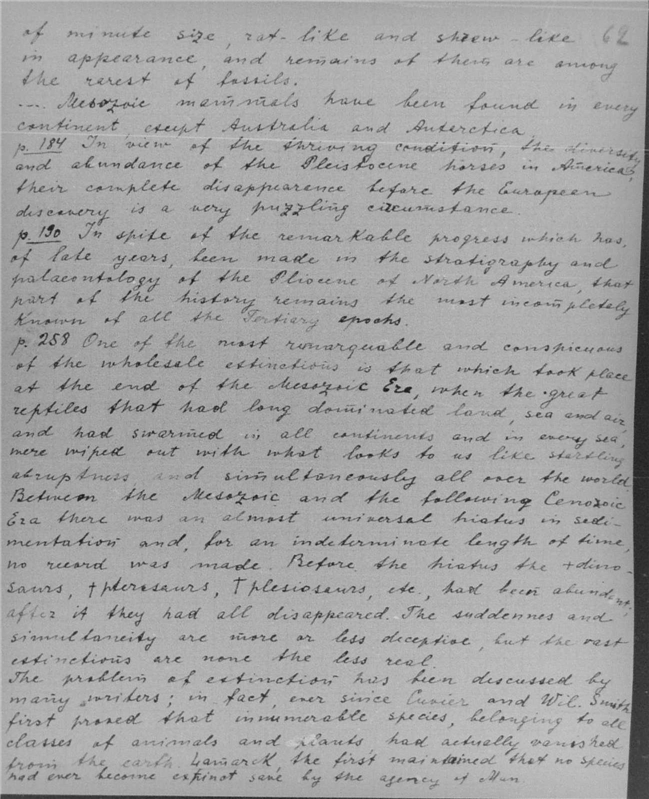 of minute size, rat-like and shrew-like 62
in appearance, and remains of them are among
the rarest of fossils.
.... Mesozoic mammals have been found in every
continent, except Australia and Antarctica
p. 184 In view of the thriving condition, the diversity
and abundance of the Pleistocene horses in America,
their complete disappearence before the European
discovery is a very puzzling circumstance
p. 190 In spite of the remarkable progress which has,
of late years, been made in the stratigraphy and
palaeontology of the Pliocene of North America, that
part of the history remains the most incompletely
known of all the Tertiary epochs.
p. 258 One of the most remarquable and conspicuous
of the wholesale extinctions is that which took place
at the end of the Mesozoic Era, when the great
reptiles that had long dominated land, sea and air,
and had swarmed in all continents and in every sea,
were wiped out with what looks to us like startling
abruptness and simultaneously all over the world
Between the Mesozoic and the following Cenozoic
Era there was an almost universal hiatus in sedi-
mentation and, for an indeterminate length of time,
no record was made. Before the hiatus the +dino-
saurs, †pterosaurs, †plesiosaurs, etc., had been abundant;
after it they had all disappeared. The suddennes and
simultaneity are more or less deceptive, but the vast
extinctions are none the less real.
The problem of extinction has been discussed by
many writers; in fact, ever since Cuvier and Wil. Smith
first proved that innumerable species, belonging to all
classes of animals and plants, had actually vanished
from the earth. Lamarck, the first maintained that no species
had ever become expinot save by the agency of Man.